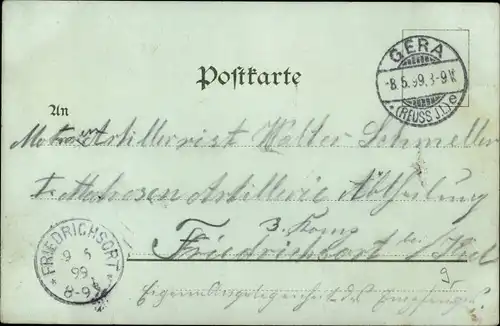 GERA
-8.5.99.8-9N.
(REUSS J.L.) e
Postkarte
An
Matrosen Artillerist Walter Schmeller
I. Matrosen Artillerie Abtheilung
3. Komp
Friedrichsort bei Kiel
FRIEDRICHSORT
9 5
99
8-9
Eigene Angelegenheit des Empfängers